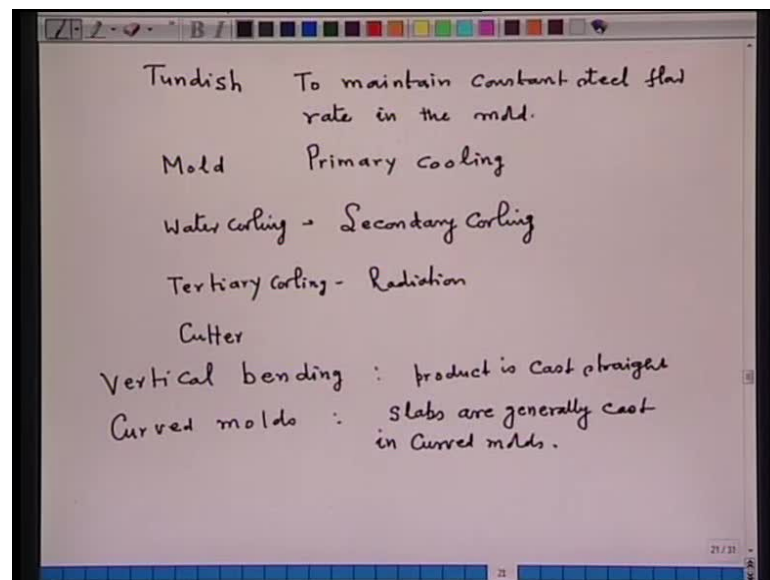 B I
Tundish To maintain constant steel flow
rate in the mold.
Mold Primary cooling
Water cooling - Secondary cooling
Tertiary cooling - Radiation
Cutter
Vertical bending : product is cast straight
Curved molds : Slabs are generally cast
in curved molds.
21 / 31
21